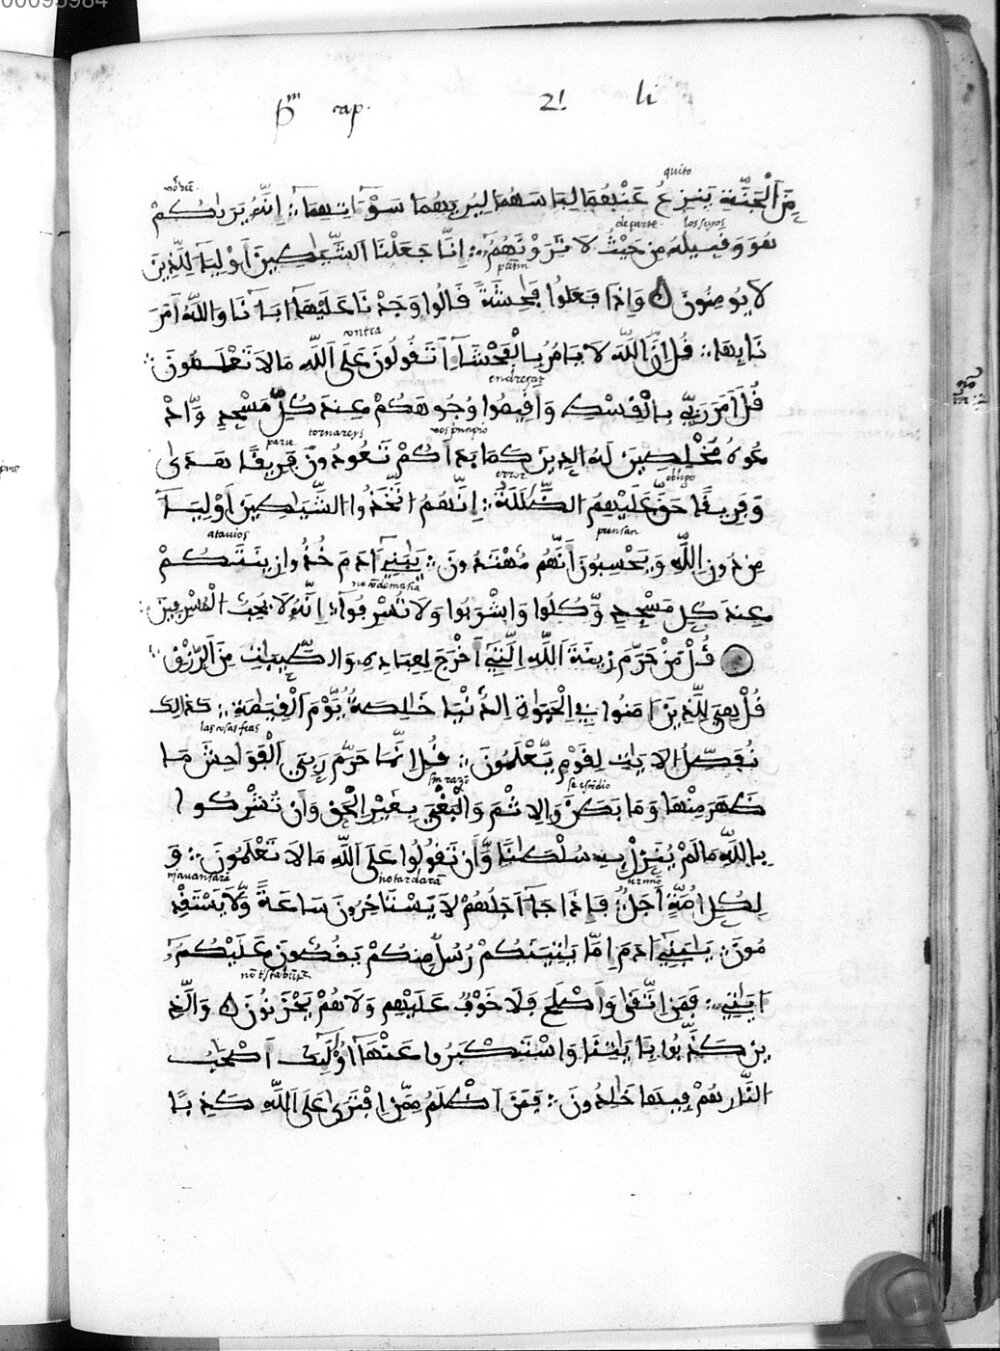 00095984
pm cap. 21 li
quito
no bie
مِّنَ ٱلْجَنَّةِ يَنزِعُ عَنْهُمَا لِبَاسَهُمَا لِيُرِيَهُمَا سَوْءَاتِهِمَا ؞ إِنَّهُ يَرَىٰكُمْ
de parte los suyos
هُوَ وَقَبِيلُهُ مِنْ حَيْثُ لَا تَرَوْنَهُمْ ؞ إِنَّا جَعَلْنَا ٱلشَّيَٰطِينَ أَوْلِيَآءَ لِلَّذِينَ
لَا يُومِنُونَ وَإِذَا فَعَلُوا فَٰحِشَةً قَالُوا وَجَدْنَا عَلَيْهَآ ءَابَآءَنَا وَاللَّهُ أَمَرَ
contra
نَا بِهَا ؞ قُلْ إِنَّ اللَّهَ لَا يَامُرُ بِالْفَحْشَآءِ أَتَقُولُونَ عَلَى ٱللَّهِ مَا لَا تَعْلَمُونَ ؞
endreçar
قُلْ أَمَرَ رَبِّي بِالْقِسْطِ وَأَقِيمُوا وُجُوهَكُمْ عِندَ كُلِّ مَسْجِدٍ وَّادْ
parte tornareys vos principio
عُوهُ مُخْلِصِينَ لَهُ الدِينَ كَمَا بَدَأَكُمْ تَعُودُونَ فَرِيقًا هَدَىٰ
error obligo
وَفَرِيقًا حَقَّ عَلَيْهِمُ الضَّلَٰلَةُ ؞ إِنَّهُمُ اتَّخَذُوا الشَّيَٰطِينَ أَوْلِيَآءَ
atavios piensan
مِن دُونِ اللَّهِ وَيَحْسِبُونَ أَنَّهُم مُّهْتَدُونَ ؞ يَٰبَنِي ءَادَمَ خُذُوا زِينَتَكُمْ
عِندَ كُلِّ مَسْجِدٍ وَّكُلُوا وَاشْرَبُوا وَلَا تُسْرِفُوٓا ؞ إِنَّهُ لَا يُحِبُّ الْمُسْرِفِينَ ؞
قُلْ مَنْ حَرَّمَ زِينَةَ اَللَّهِ اِلَّتِي أَخْرَجَ لِعِبَادِهِ وَالطَّيِّبَٰتِ مِنَ ٱلرِّزْقِ ؞
قُلْ هِيَ لِلَّذِينَ ءَامَنُوا فِي اِلْحَيَوٰةِ اِلدُّنْيَا خَالِصَةٌ يَّوْمَ اَلْقِيَٰمَةِ ؞ كَذَالِكَ
las cosas feas
نُفَصِّلُ الَايَٰتِ لِقَوْمٍ يَّعْلَمُونَ ؞ قُلْ إِنَّمَا حَرَّمَ رَبِّيَ ٱلْفَوَاحِشَ مَا
sin razon se escōdio
ظَهَرَ مِنْهَا وَمَا بَطَنَ وَالِاثْمَ وَالْبَغْيَ بِغَيْرِ الْحَقِّ وَأَن تُشْرِكُوا
بِاللَّهِ مَا لَمْ يُنَزِّلْ بِهِ سُلْطَٰنًا وَّأَن تَقُولُوا عَلَى ٱللَّهِ مَا لَا تَعْلَمُونَ ؞ وَ
no tardarā
لِكُلِّ أُمَّةٍ أَجَلٌ ؞ فَإِذَا جَآ أَجَلُهُمْ لَا يَسْتَاخِرُونَ سَاعَةً وَّلَا يَسْتَقْدِ
مُونَ ؞ يَٰبَنِي ءَادَمَ إِمَّا يَاتِيَنَّكُمْ رُسُلٌ مِّنكُمْ يَقُصُّونَ عَلَيْكُمُ
ءَايَٰتِي ؞ فَمَنِ اتَّقَىٰ وَأَصْلَحَ فَلَا خَوْفٌ عَلَيْهِمْ وَلَا هُمْ يَحْزَنُونَ وَالَّذِ
ينَ كَذَّبُوا بِـَٔايَٰتِنَا وَاسْتَكْبَرُوا عَنْهَآ أُوْلَٰٓئِكَ أَصْحَٰبُ
النَّارِ هُمْ فِيهَا خَٰلِدُونَ ؞ فَمَنَ اَظْلَمُ مِمَّنِ اِفْتَرَىٰ عَلَى ٱللَّهِ كَذِبًا